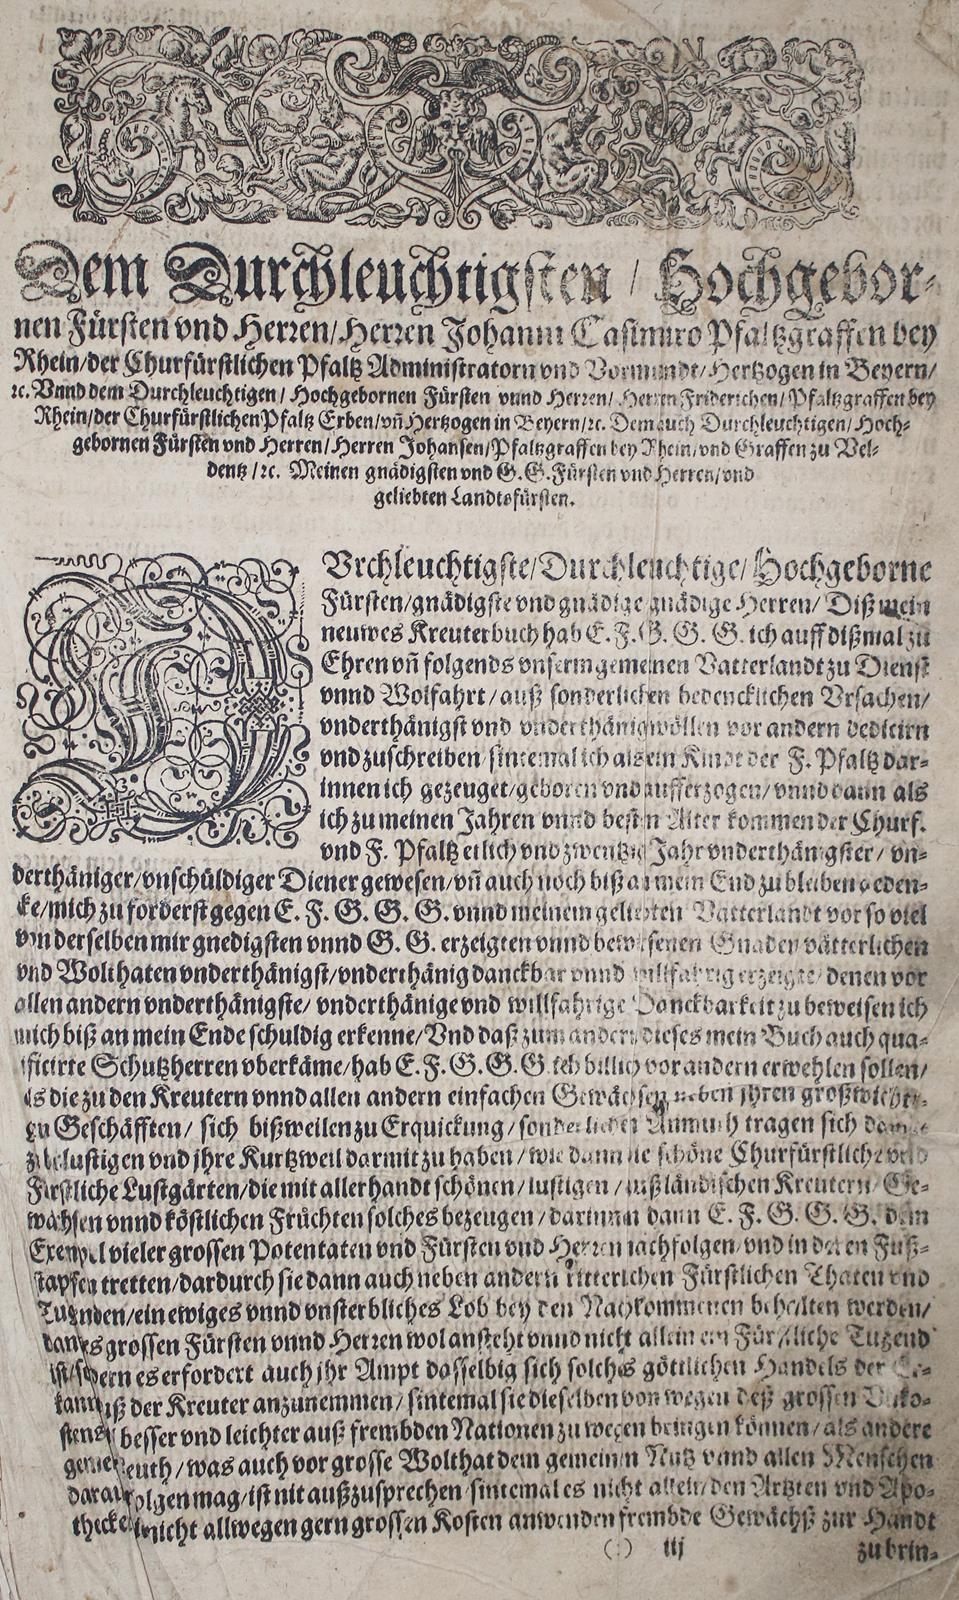 Dem Durchleuchtigsten / Hochgebor-
nen Fürsten vnd Herren/Herren Johanni Casimiro Pfaltzgraffen bey
Rhein/der Churfürstlichen Pfaltz Administratorn vnd Vormundt/Hertzogen in Beyern/
ꝛc. Vnnd dem Durchleuchtigen / Hochgebornen Fürsten vnnd Herren/ Herren Friderichen/Pfaltzgraffen bey
Rhein/der Churfürstlichen Pfaltz Erben/vñ Hertzogen in Beyern/ꝛc. Dem auch Durchleuchtigen/Hoch-
gebornen Fürsten vnd Herren/Herren Johansen/Pfaltzgraffen bey Rhein/vnd Graffen zu Vel-
dentz/ꝛc. Meinen gnädigsten vnd G. G. Fürsten vnd Herren/vnd
geliebten Landtsfürsten.
DVrchleuchtigste/Durchleuchtige/Hochgeborne
Fürsten/gnädigste vnd gnädige gnädige Herren/ Diß mein
neuwes Kreuterbuch hab E. F. G. G. G. ich auff dißmal zu
Ehren vñ folgends vnserm gemeinen Vatterlandt zu Dienst
vnnd Wolfahrt/auß sonderlichen bedencklichen Vrsachen/
vnderthänigst vnd vnderthänig wöllen vor andern dedicirn
vnd zuschreiben/sintemal ich als ein Kindt der F. Pfaltz dar-
innen ich gezeuget/geboren vnd aufferzogen/vnnd dann als
ich zu meinen Jahren vnnd besten Alter kommen der Churf.
vnd F. Pfaltz etlich vnd zwentzig Jahr vnderthänigster/ vn-
derthäniger/vnschüldiger Diener gewesen/vñ auch noch biß an mein End zu bleiben geden-
cke/mich zu forderst gegen E. F. G. G. G. vnnd meinem geliebten Vatterlandt vor so viel
von derselben mir gnedigsten vnnd G. G. erzeigten vnnd bewisenen Gnaden vätterlichen
vnd Wolthaten vnderthänigst/vnderthänig danckbar vnnd willfahrig erzeigte/denen vor
allen andern vnderthänigste/ vnderthänige vnd willfahrige Danckbarkeit zu beweisen ich
mich biß an mein Ende schuldig erkenne/Vnd daß zum andern dieses mein Buch auch qua-
ificirte Schutzherren vberkäme/hab E. F. G. G. G. ich billich vor andern erwehlen sollen/
ls die zu den Kreutern vnnd allen andern einfachen Gewächsen neben jhren großwichti-
gen Geschäfften/ sich bißweilen zu Erquickung/sonderlichen Anmuth tragen sich damit
zubelustigen vnd jhre Kurtzweil darmit zu haben/ wie dann die schöne Churfürstliche vnd
Fürstliche Lustgärten/die mit allerhandt schönen/lustigen/außländischen Kreutern/Ge-
wächsen vnnd köstlichen Früchten solches bezeugen/darinnen dann E. F. G. G. G. dem
Exempel vieler grossen Potentaten vnd Fürsten vnd Herren nachfolgen/vnd in deren Fuß-
stapfen tretten/dardurch sie dann auch neben andern ritterlichen Fürstlichen Thaten vnd
Tugenden/ein ewiges vnnd vnsterbliches Lob bey den Nachkommenen behalten werden/
dann es grossen Fürsten vnnd Herren wol ansteht vnnd nicht allein ein Fürstliche Tugend
ist/sondern es erfordert auch jhr Ampt dasselbig sich solches göttlichen Handels der Er-
kanntnuß der Kreuter anzunemmen/sintemal sie dieselben von wegen deß grossen Vnko-
stens besser vnd leichter auß frembden Nationen zu wegen bringen können/als andere
gemeine Leuth/was auch vor grosse Wolthat dem gemeinen Nutz vnnd allen Menschen
darauß folgen mag/ist nit außzusprechen/sintemal es nicht allein/den Artzten vnd Apo-
thecken nicht allwegen gern grossen Kosten anwenden frembde Gewächß zur Handt
(:) iij zu brin-